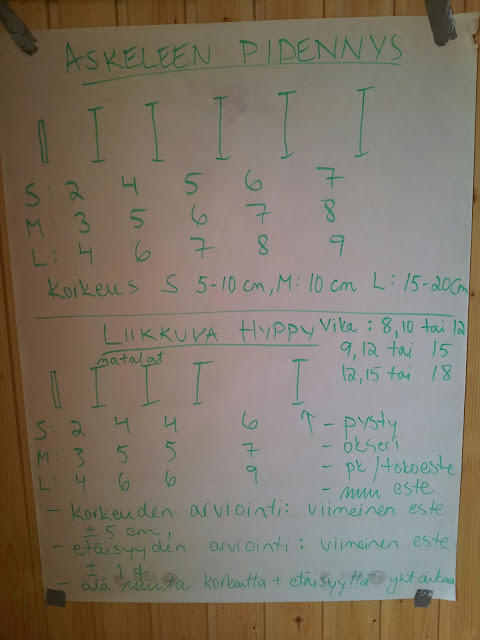 ASKELEEN PIDENNYS
S: 2 4 5 6 7
M: 3 5 6 7 8
L: 4 6 7 8 9
Korkeus S 5-10 cm, M: 10 cm L: 15-20cm
LIIKKUVA HYPPY
Vika: 8,10 tai 12
9,12 tai 15
12,15 tai 18
matalat
S: 2 4 4 6
M: 3 5 5 7
L: 4 6 6 9
- pysty
- okseri
- pk/tokoeste
- muu este
- korkeuden arviointi: viimeinen este
± 5 cm,
- etäisyyden arviointi: viimeinen este
± 1
- älä muuta korkeutta + etäisyyttä yht'aikaa